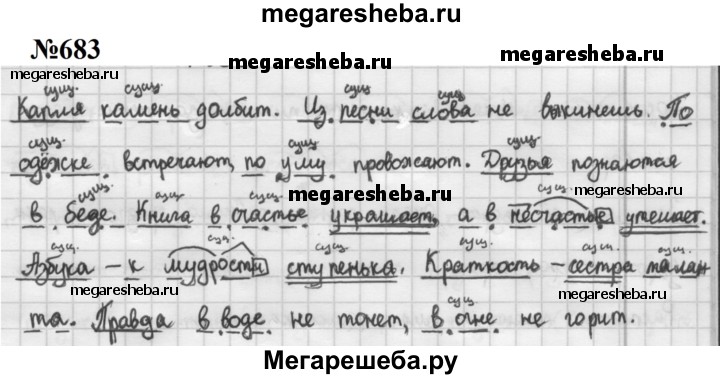 megaresheba.ru
№683
megaresheba.ru megaresheba.ru
сущ. сущ. сущ. сущ.
Капля камень долбит. Из песни слова не выкинешь. По
сущ. сущ. сущ.
одёжке встречают, по уму провожают. Друзья познаются
megaresheba.ru
сущ. сущ. сущ. сущ.
в беде. Книга в счастье украшает, а в несчастье утешает.
сущ. сущ. сущ. сущ. сущ.
Азбука – к мудрости ступенька. Краткость – сестра талан
megaresheba.ru megaresheba.ru
сущ.
та. Правда в воде не тонет, в огне не горит.
Мегарешеба.ру